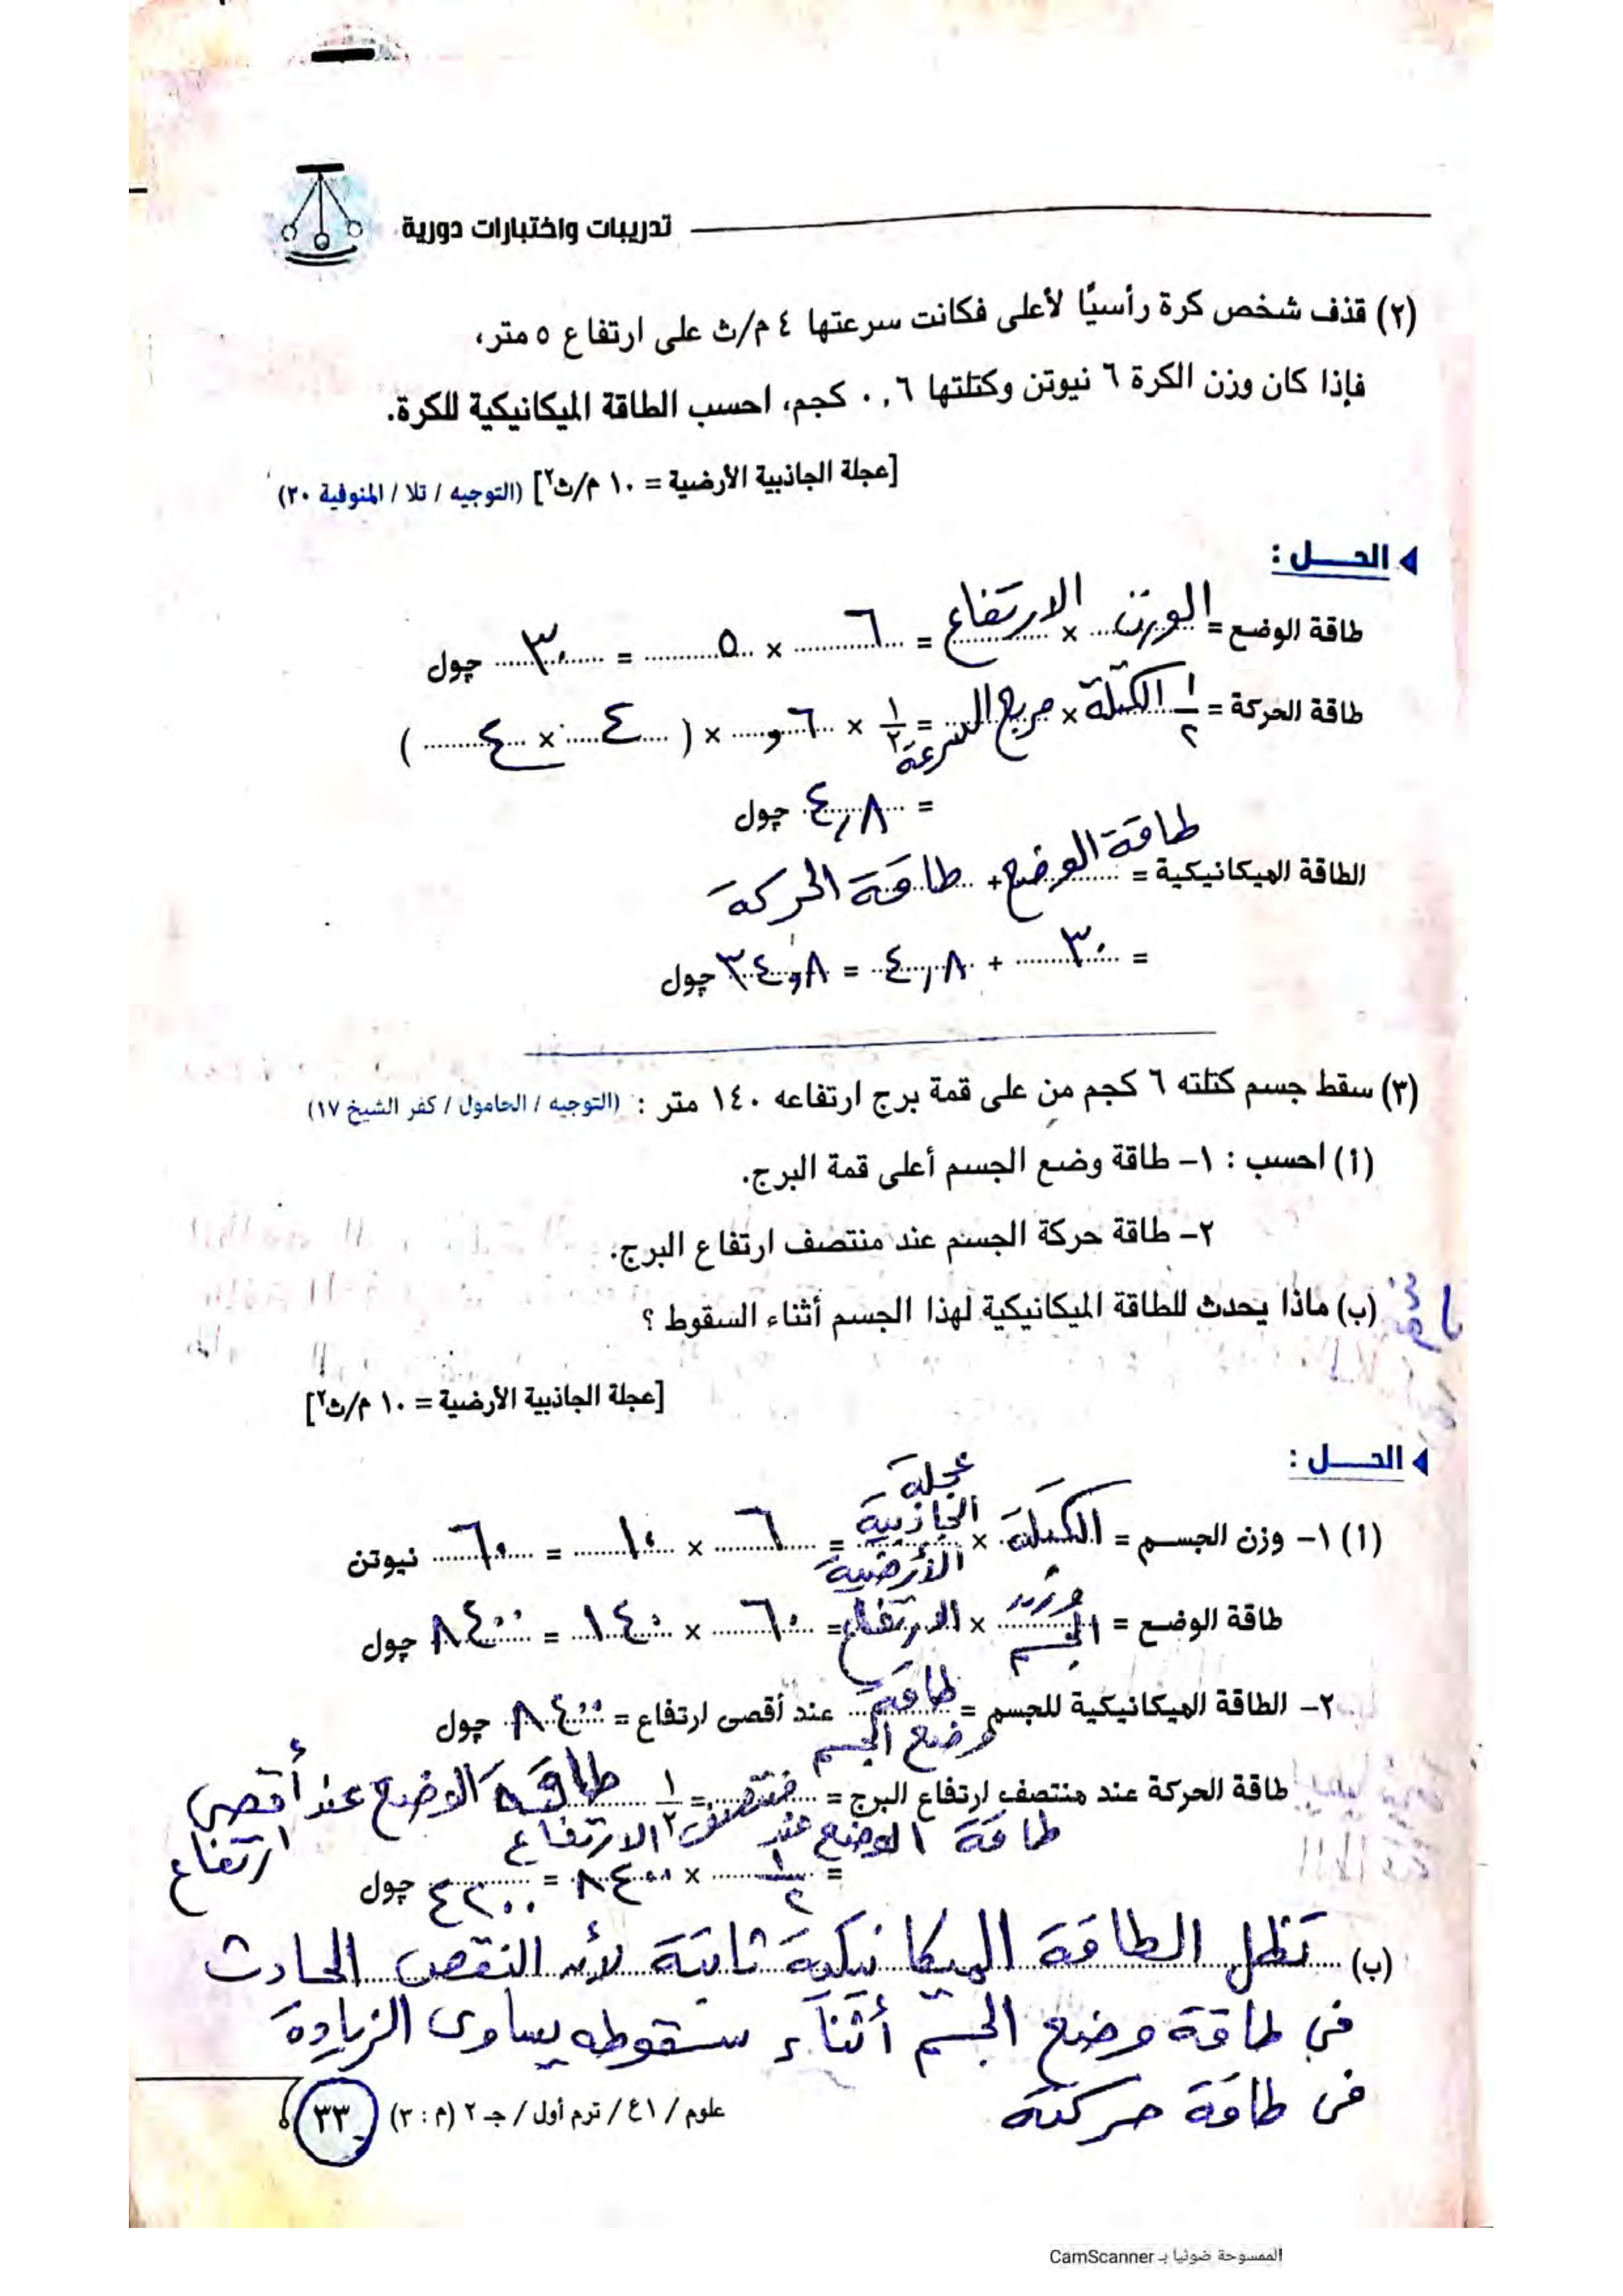 تدريبات واختبارات دورية
(٢) قذف شخص كرة رأسيًا لأعلى فكانت سرعتها ٤ م/ث على ارتفاع ٥ متر،
فإذا كان وزن الكرة ٦ نيوتن وكتلتها ٠,٦ كجم، احسب الطاقة الميكانيكية للكرة.
[عجلة الجاذبية الأرضية = ١٠ م/ث٢] (التوجيه / تلا / المنوفية ٢٠)
الحـــل :
طاقة الوضع = الوزن × الارتفاع = ٦ × ٥ = ٣٠ چول
طاقة الحركة = ١/٢ الكتلة × مربع السرعة = ١/٢ × ٦و × ( ٤ × ٤ )
= ٤,٨ چول
الطاقة الميكانيكية = طاقة الوضع + طاقة الحركة
= ٣٠ + ٤,٨ = ٣٤,٨ چول
(٣) سقط جسم كتلته ٦ كجم من على قمة برج ارتفاعه ١٤٠ متر : (التوجيه / الحامول / كفر الشيخ ١٧)
(أ) احسب : ١- طاقة وضع الجسم أعلى قمة البرج.
٢- طاقة حركة الجسم عند منتصف ارتفاع البرج.
(ب) ماذا يحدث للطاقة الميكانيكية لهذا الجسم أثناء السقوط ؟
[عجلة الجاذبية الأرضية = ١٠ م/ث٢]
الحـــل :
(أ) ١- وزن الجسم = الكتلة × عجلة الجاذبية الأرضية = ٦ × ١٠ = ٦٠ نيوتن
طاقة الوضع = وزن الجسم × الارتفاع = ٦٠ × ١٤٠ = ٨٤٠٠ چول
٢- الطاقة الميكانيكية للجسم = طاقة وضع الجسم عند أقصى ارتفاع = ٨٤٠٠ چول
طاقة الحركة عند منتصف ارتفاع البرج = طاقة الوضع عند منتصف الارتفاع = ١/٢ طاقة الوضع عند أقصى ارتفاع
= ١/٢ × ٨٤٠٠ = ٤٢٠٠ چول
(ب) تظل الطاقة الميكانيكية ثابتة لأن النقص الحادث
في طاقة وضع الجسم أثناء سقوطه يساوى الزيادة
فى طاقة حركته
علوم / ١ع / ترم أول / جـ ٢ (م : ٣) ٣٣
الممسوحة ضوئيا بـ CamScanner